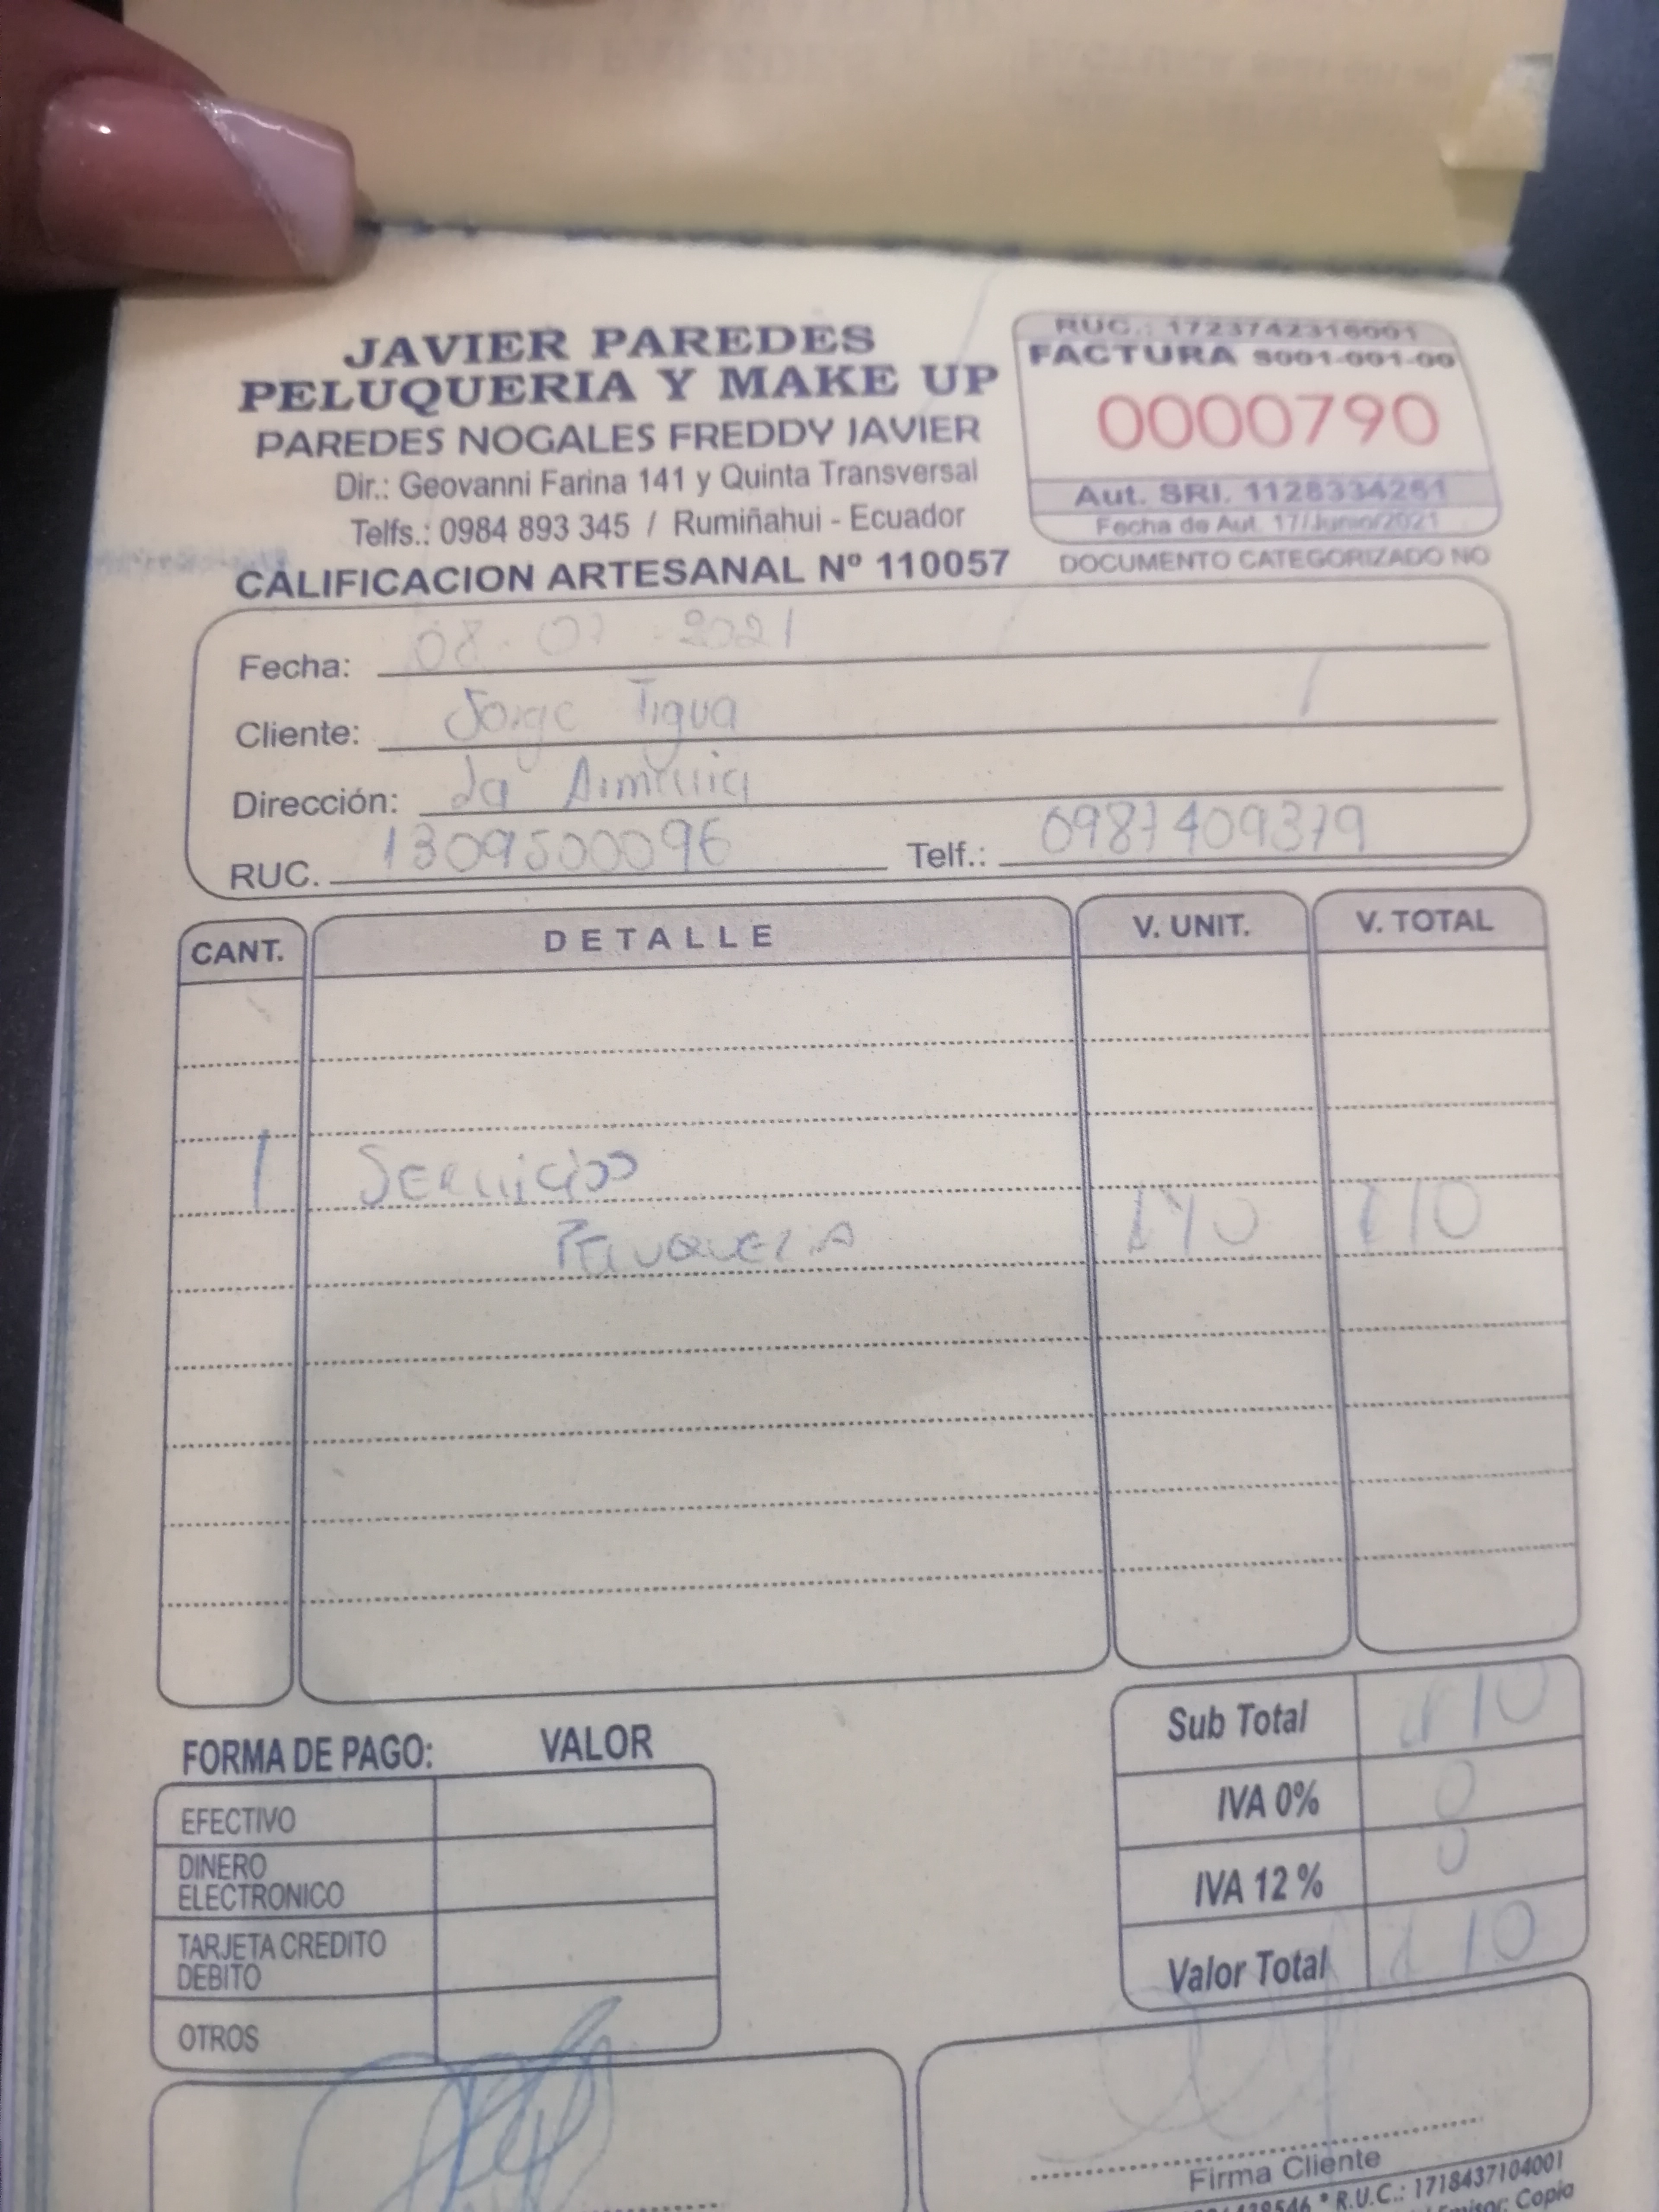 JAVIER PAREDES
PELUQUERIA Y MAKE UP
PAREDES NOGALES FREDDY JAVIER
Dir.: Geovanni Farina 141 y Quinta Transversal
Telfs.: 0984 893 345 / Rumiñahui - Ecuador
CALIFICACION ARTESANAL Nº 110057
RUC.: 1723742316001
FACTURA S001-001-00
0000790
Aut. SRI. 1128334261
Fecha de Aut. 17/Junio/2021
DOCUMENTO CATEGORIZADO NO
Fecha: 08-07-2021
Cliente: Jorge Tigua
Dirección: La Armenia
RUC. 1309500096 Telf.: 0987409379
CANT. DETALLE V. UNIT. V. TOTAL
1 Servicios
Peluqueria 10
FORMA DE PAGO: VALOR
EFECTIVO
DINERO
ELECTRONICO
TARJETA CREDITO
DEBITO
OTROS
Sub Total 10
IVA 0% 0
IVA 12 % 0
Valor Total 10
Firma Cliente
R.U.C.: 1718437104001
Emisor: Copia